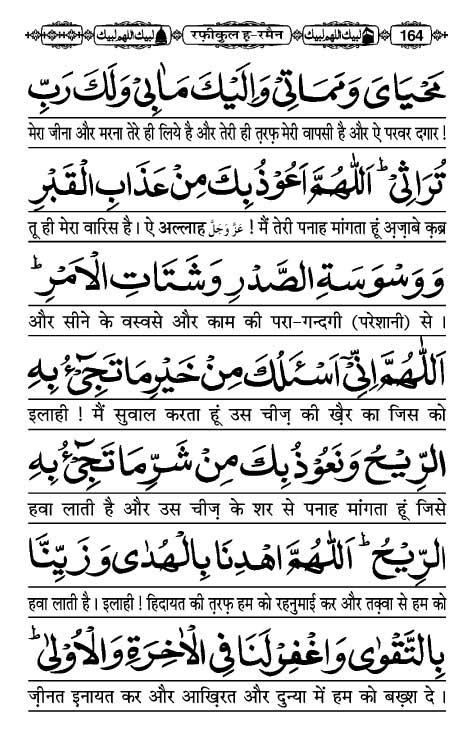 لبيك اللهم لبيك रफ़ीकुल ह-रमैन لبيك اللهم لبيك 164
مَحْيَايَ وَمَمَاتِيْ وَاِلَيْكَ مَاٰبِيْ وَلَكَ رَبِّ
मेरा जीना और मरना तेरे ही लिये है और तेरी ही त़रफ़ मेरी वापसी है और ऐ परवर दगार !
تُرَاثِيْ ؕ اَللّٰهُمَّ اَعُوْذُ بِكَ مِنْ عَذَابِ الْقَبْرِ
तू ही मेरा वारिस है। ऐ अल्लाह عَزَّوَجَلَّ ! मैं तेरी पनाह मांगता हूं अ़ज़ाबे क़ब्र
وَ وَسْوَسَةِ الصَّدْرِ وَشَتَاتِ الْاَمْرِ ؕ
और सीने के वस्वसे और काम की परा-गन्दगी (परेशानी) से ।
اَللّٰهُمَّ اِنِّيْٓ اَسْئَلُكَ مِنْ خَيْرِ مَا تَجِيْٓءُ بِهِ
इलाही ! मैं सुवाल करता हूं उस चीज़ की ख़ैर का जिस को
الرِّيْحُ وَنَعُوْذُ بِكَ مِنْ شَرِّ مَا تَجِيْٓءُ بِهِ
हवा लाती है और उस चीज़ के शर से पनाह मांगता हूं जिसे
الرِّيْحُ ؕ اَللّٰهُمَّ اهْدِنَا بِالْهُدٰى وَ زَيِّنَّا
हवा लाती है। इलाही ! हिदायत की त़रफ़ हम को रहनुमाई कर और तक़्वा से हम को
بِالتَّقْوٰى وَاغْفِرْ لَنَا فِي الْاٰخِرَةِ وَالْاُوْلٰى ؕ
ज़ीनत इनायत कर और आख़िरत और दुन्या में हम को बख़्श दे ।